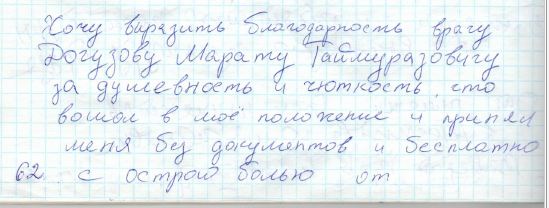 Хочу выразить благодарность врачу
Догузову Марату Таймуразовичу
за душевность и чюткость, что
вошол в моё положение и принял
меня без документов и бесплатно
62. с острой болью от